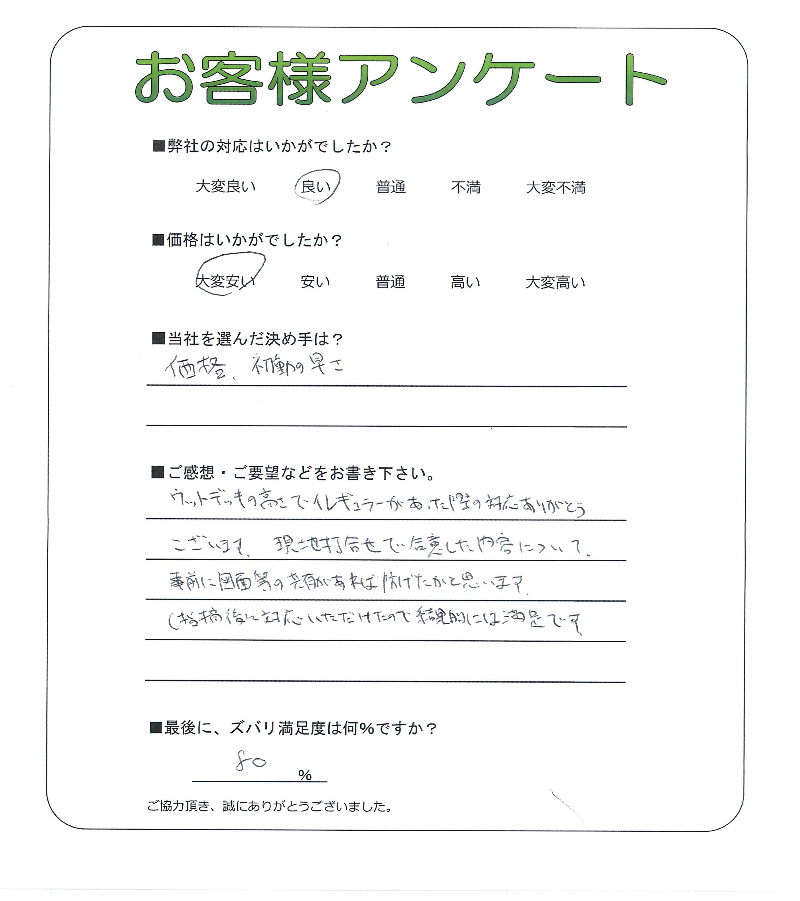 お客様アンケート
■弊社の対応はいかがでしたか？
大変良い 良い 普通 不満 大変不満
■価格はいかがでしたか？
大変安い 安い 普通 高い 大変高い
■当社を選んだ決め手は？
価格、初動の早さ
■ご感想・ご要望などをお書き下さい。
ウットデッキの高さでイレギュラーがあった際の対応ありがとう
ございます。現地打合せで合意した内容について、
事前に図面等の共有があれば防げたかと思います。
(指摘後に対応いただけたので結果的には満足です
■最後に、ズバリ満足度は何%ですか？
80 %
ご協力頂き、誠にありがとうございました。